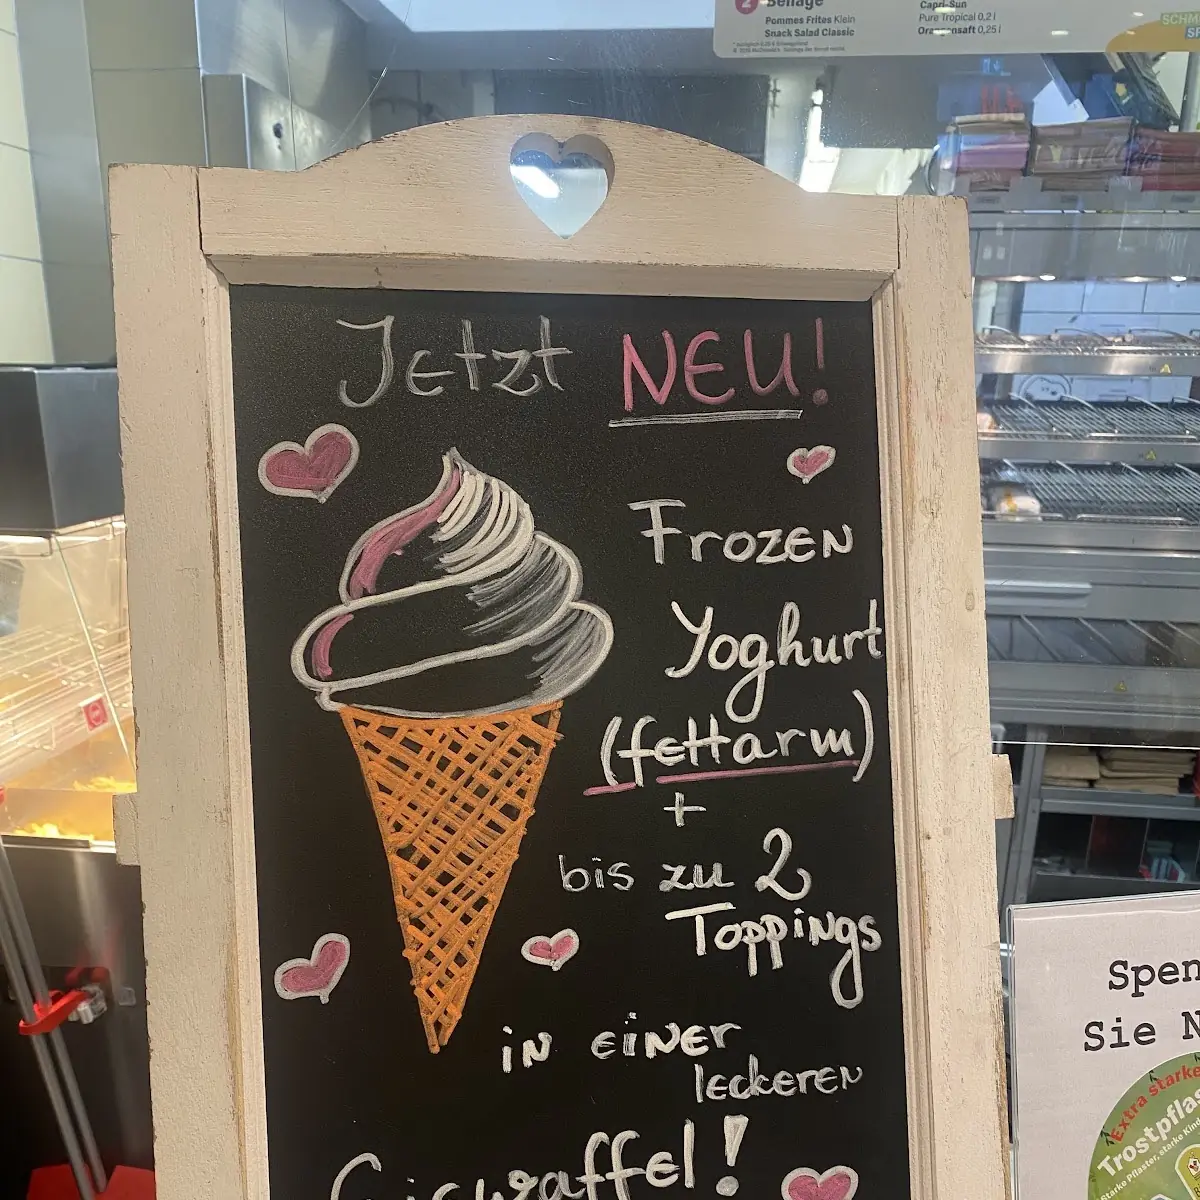 2 Beilage
Pommes Frites Klein
Snack Salad Classic
Capri-Sun
Pure Tropical 0,2 l
Orangensaft 0,25 l
Jetzt NEU!
Frozen
Yoghurt
(fettarm)
+
bis zu 2
Toppings
in einer
leckeren
Eiswaffel!
Spen
Sie N
Extra starke
Trostpflas
starke Pflaster, starke Kind